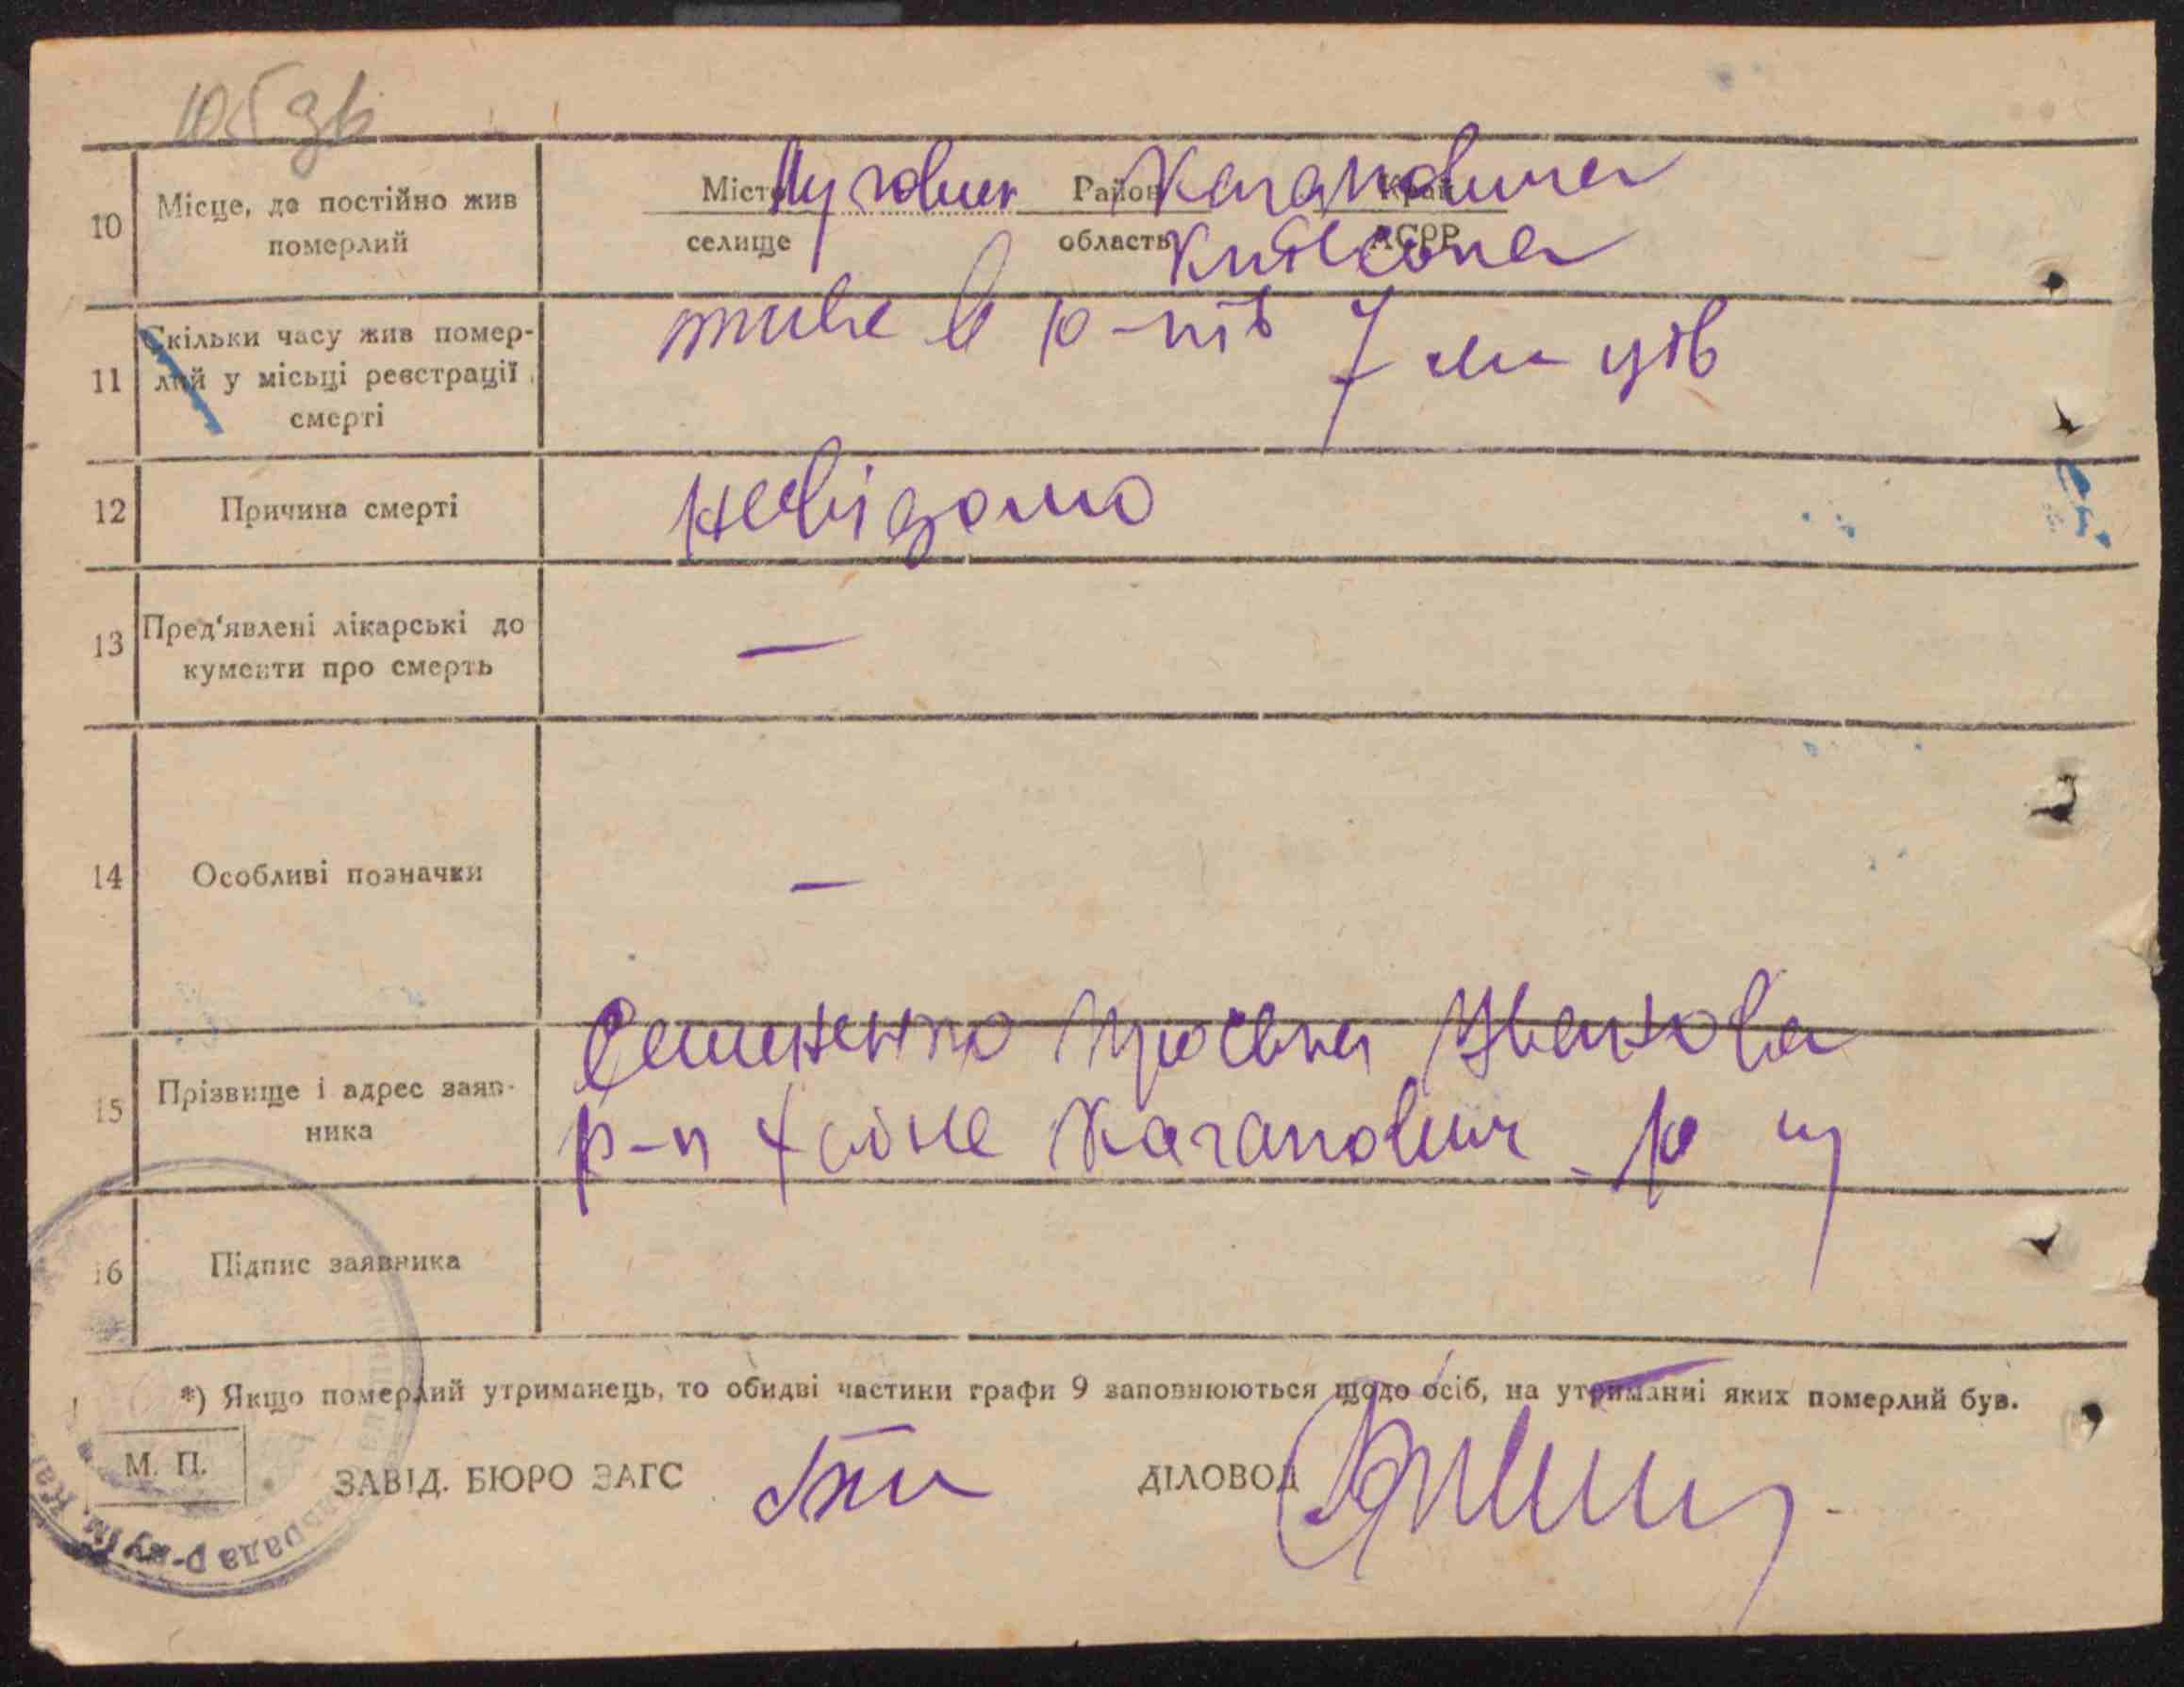 105 зв
10 Місце, де постійно жив померлий
Місто Луговики Район Кагановича Край
селище область Київська АСРР
11 Скільки часу жив помер-
лий у місьці реєстрації
смерті
живе в 7
12 Причина смерті невідомо
13 Пред'явлені лікарські до
кументи про смерть —
14 Особливі позначки —
Семененко Іванкова
15 Прізвище і адрес заяв-
ника
р-н Каганович
16 Підпис заявника
*) Якщо померлий утриманець, то обидві частини графи 9 заповнюються щодо осіб, на утриманні яких померлий був.
М. П.
ЗАВІД. БЮРО ЗАГС ДІЛОВОД
рада р-ну ім. Ка